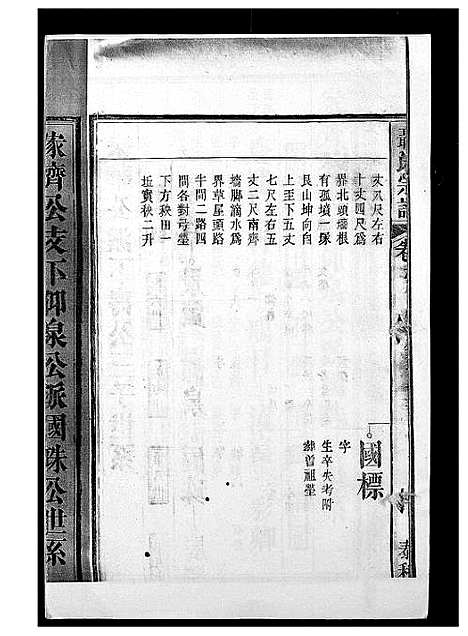 丈八尺左右
十丈四尺為
界北頭墻根
有孤墳一塚
艮山坤向自
上至下五丈
七尺左右五
丈二尺南齊
墻脚滴水為
界草尾頭路
牛間二路四
間各對毋塋
下方秧田一
坵實秧二升
國標
字
生卒失考附
葬曾祖塋
齊公支下仰泉公派國珠公世系